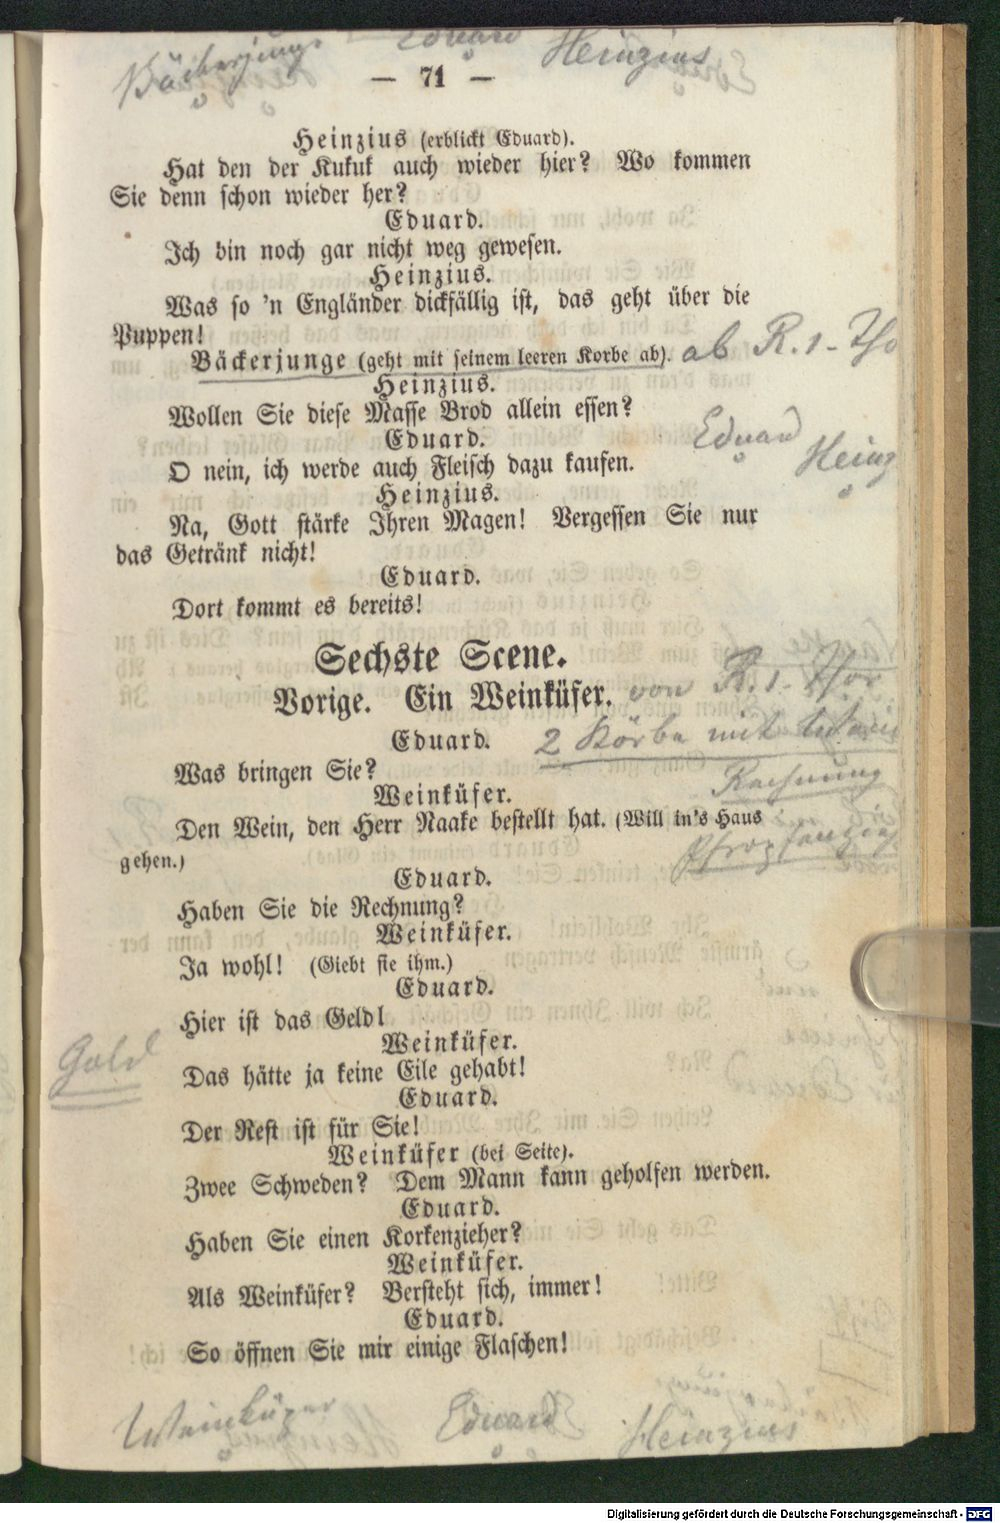 Bäckerjunge Eduard Heinzius
— 71 —
Heinzius (erblickt Eduard).
Hat den der Kukuk auch wieder hier? Wo kommen
Sie denn schon wieder her?
Eduard.
Ich bin noch gar nicht weg gewesen.
Heinzius.
Was so 'n Engländer dickfällig ist, das geht über die
Puppen!
Bäckerjunge (geht mit seinem leeren Korbe ab). ab R. 1 - Tho
Heinzius.
Wollen Sie diese Masse Brod allein essen?
Eduard. Eduard
O nein, ich werde auch Fleisch dazu kaufen. Heinz
Heinzius.
Na, Gott stärke Ihren Magen! Vergessen Sie nur
das Getränk nicht!
Eduard.
Dort kommt es bereits!
Sechste Scene.
Vorige. Ein Weinküfer. von R. 1. Thor
Eduard. 2 Körbe mit Wein
Was bringen Sie? Rechnung
Weinküfer.
Den Wein, den Herr Naake bestellt hat. (Will in's Haus
gehen.)
Eduard.
Haben Sie die Rechnung?
Weinküfer.
Ja wohl! (Giebt sie ihm.)
Eduard.
Hier ist das Geld!
Weinküfer.
Geld
Das hätte ja keine Eile gehabt!
Eduard.
Der Rest ist für Sie!
Weinküfer (bei Seite).
Zwee Schweden? Dem Mann kann geholfen werden.
Eduard.
Haben Sie einen Korkenzieher?
Weinküfer.
Als Weinküfer? Versteht sich, immer!
Eduard.
So öffnen Sie mir einige Flaschen!
Weinküper Eduard Heinzius
Digitalisierung gefördert durch die Deutsche Forschungsgemeinschaft - DFG